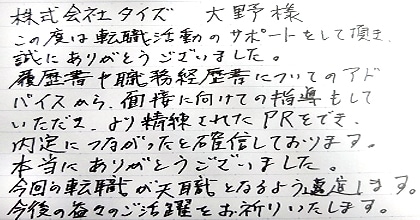 株式会社タイズ 大野様
この度は転職活動のサポートをして頂き、
誠にありがとうございました。
履歴書や職務経歴書についてのアド
バイスから、面接に向けての指導もして
いただき、より精練されたPRをでき、
内定につながったと確信しております。
本当にありがとうございました。
今回の転職が天職となるよう邁進します。
今後の益々のご活躍をお祈りいたします。